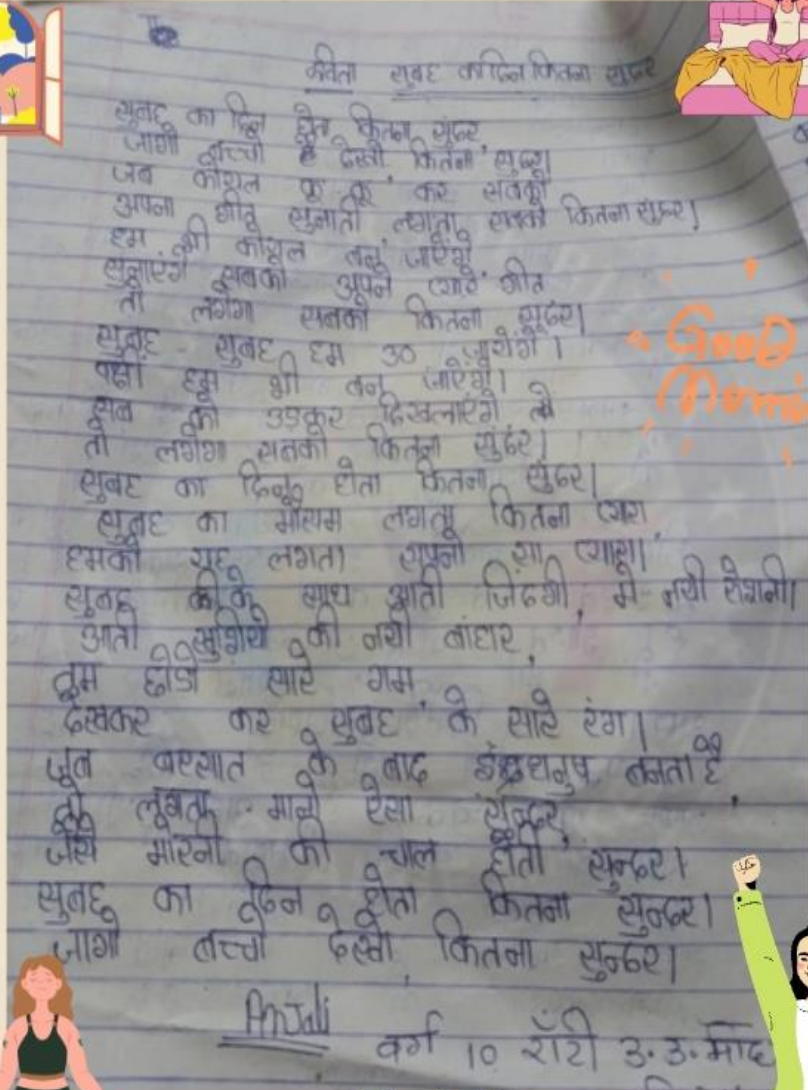 कविता सुबह का दिन कितना सुंदर
सुबह का दिन होत कितना सुंदर,
जागो बच्चो देखो कितना सुंदर।
जब कोयल कू कू कर सबको
अपना गीत सुनाती लगता सबको कितना सुंदर।
हम भी कोयल बन जाएंगे
सुनाएंगे सबको अपने प्यारे गीत
तो लगेगा सबको कितना सुंदर।
सुबह - सुबह हम उठ जायेंगे।
पंछी हम भी बन जाएंगे।
सब को उड़कर दिखलाएंगे
तो लगेगा सबको कितना सुंदर।
सुबह का दिन होता कितना सुंदर।
सुबह का मौसम लगता कितना प्यारा
हमको यह लगता सपनो सा प्यारा।
सुबह के साथ आती जिंदगी में नयी रोशनी।
आती खुशियों की नयी बाहार,
तुम छोडो सारे गम
देखकर कर सुबह के सारे रंग।
जब बरसात के बाद इंद्रधनुष बनता है,
तो लगता मानो ऐसा सुन्दर,
जैसे मोरनी की चाल होती सुन्दर।
सुबह का दिन होता कितना सुन्दर।
जागो बच्चो देखो कितना सुन्दर।
Anjali
वर्ग 10 राँटी उ.उ.
GOOD